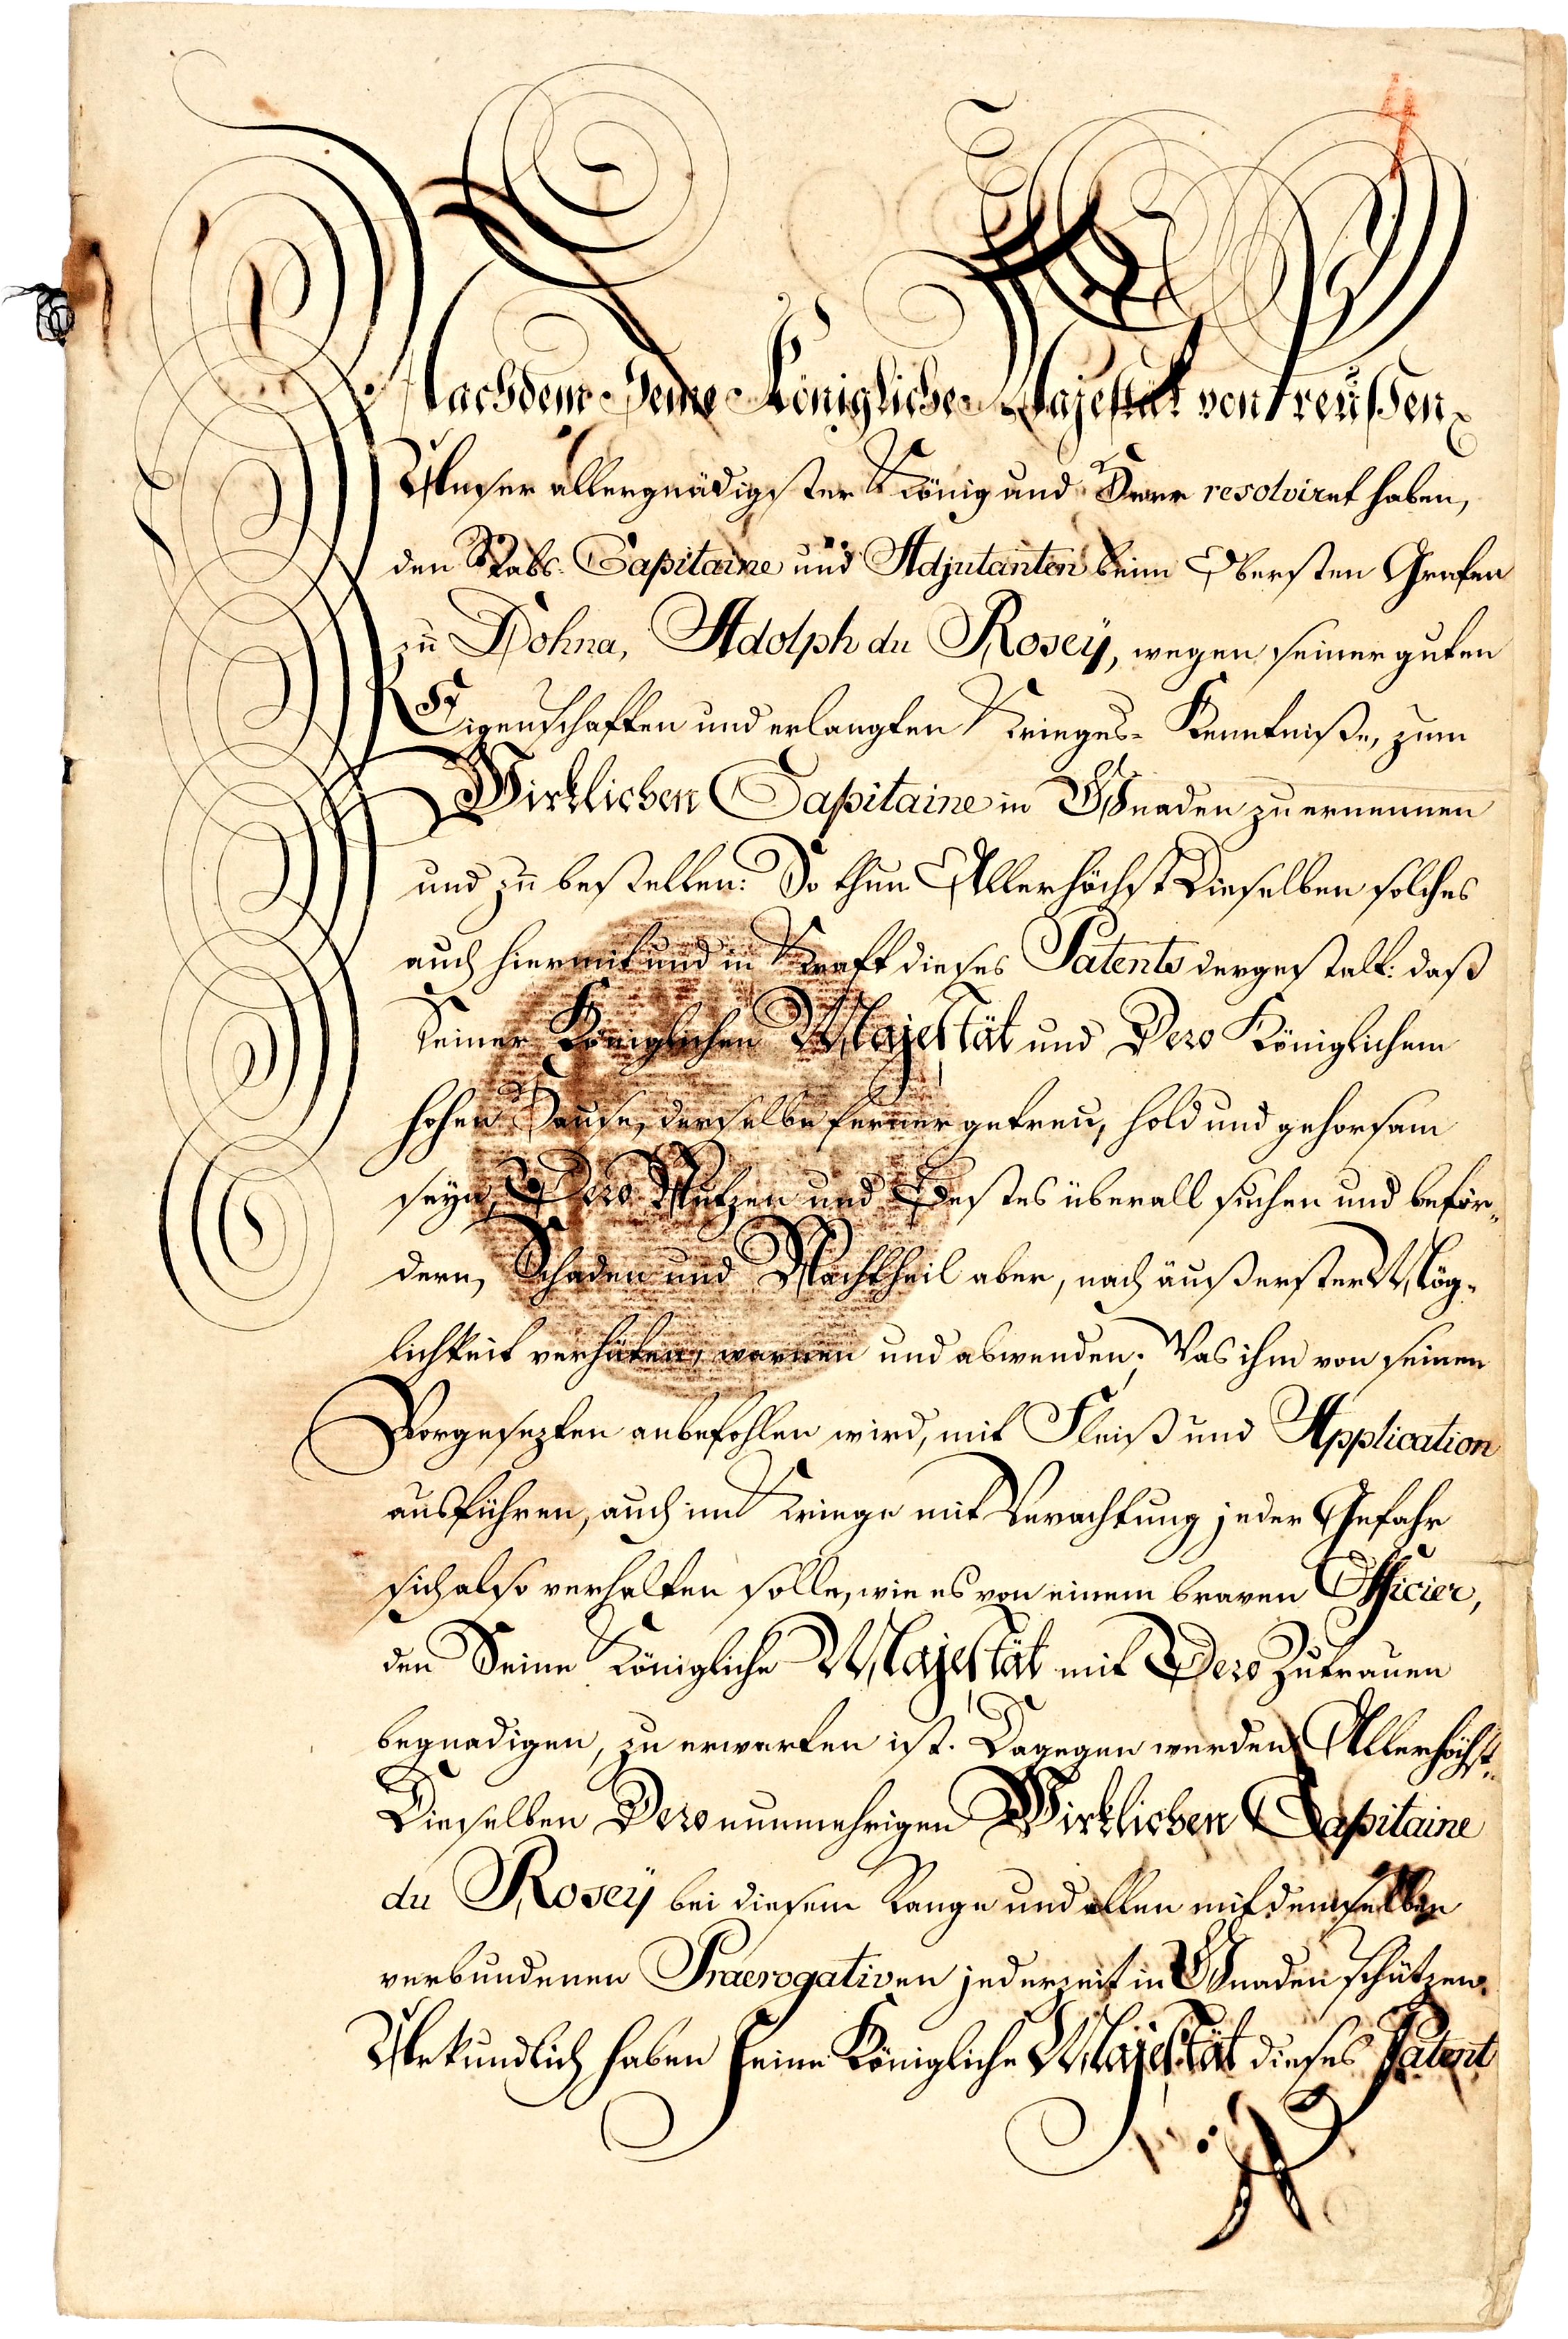 Nachdem Seine Königliche Majestät von Preußen
Unser allergnädigster König und Herr resolviret haben,
den Stabs-Capitaine und Adjutanten beim Obersten Grafen
zu Dohna, Adolph du Rosey, wegen seiner guten
Eigenschaften und erlangten Krieges-Kenntniße, zum
Wirklichen Capitaine in Gnaden zu ernennen
und zu bestellen: So thun Allerhöchst Dieselben solches
auch hiermit und in Kraft dieses Patents dergestalt: daß
Seiner Königlichen Majestät und Dero Königlichem
hohen Hause, derselbe ferner getreu, hold und gehorsam
seyn, Dero Nutzen und Bestes überall suchen und beför-
dern, Schaden und Nachtheil aber, nach äußerster Mög-
lichkeit verhüten, warnen und abwenden; Was ihm von seinen
Vorgesezten anbefohlen wird, mit Fleiß und Application
ausführen, auch im Kriege mit Verachtung jeder Gefahr
sich also verhalten solle, wie es von einem braven Officier,
den Seine Königliche Majestät mit Dero Zutrauen
begnadigen, zu erwarten ist. Dagegen werden Allerhöchst-
Dieselben Dero nunmehrigen Wirklichen Capitaine
du Rosey bei diesem Range und allen mit demselben
verbundenen Praerogativen jederzeit in Gnaden schützen.
Urkundlich haben Seine Königliche Majestät dieses Patent